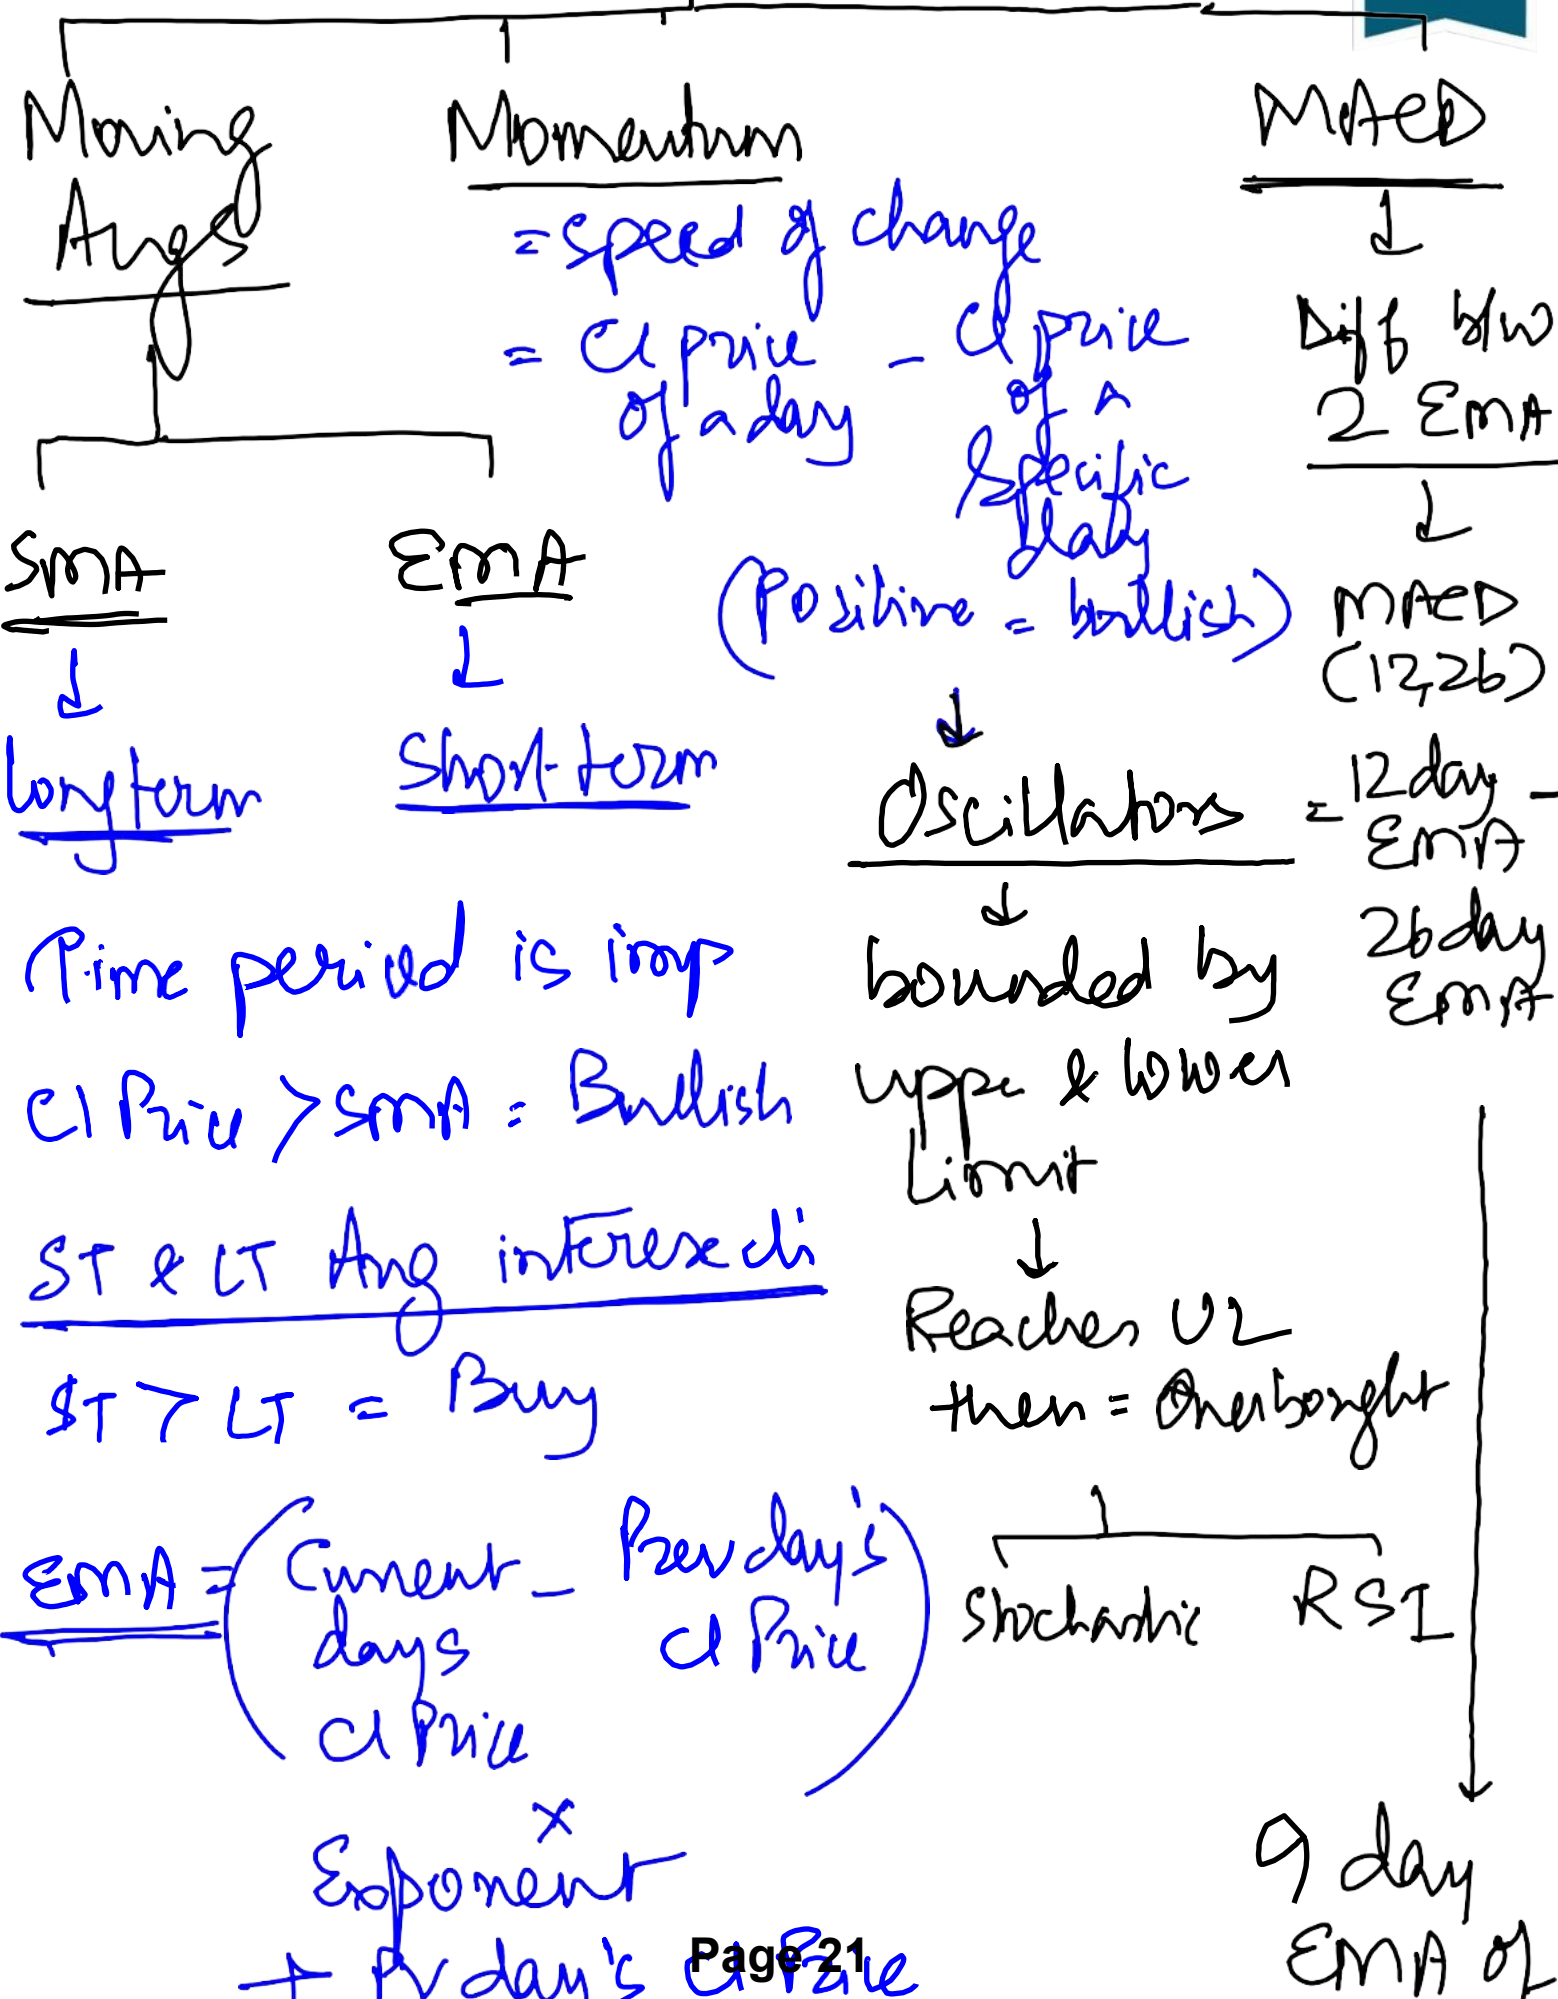 Moving
Avgs
SMA
Long term
EMA
Short-term
Time period is imp
Cl Price > SMA = Bullish
ST & LT Avg intersects
ST > LT = Buy
EMA = (Current days Cl Price - Prev day's Cl Price)
×
Exponent
+ Pv day's Cl Price
Momentum
= Speed of change
= Cl price of a day - Cl price of a
Specific
(Positive = bullish)
Oscillators
bounded by
uppe & lower
Limit
Reaches UL
then = Overbought
Stochastic RSI
MACD
Diff b/w
2 EMA
MACD
(12,26)
= 12 day -
EMA
26 day
EMA
9 day
EMA of
Page 21